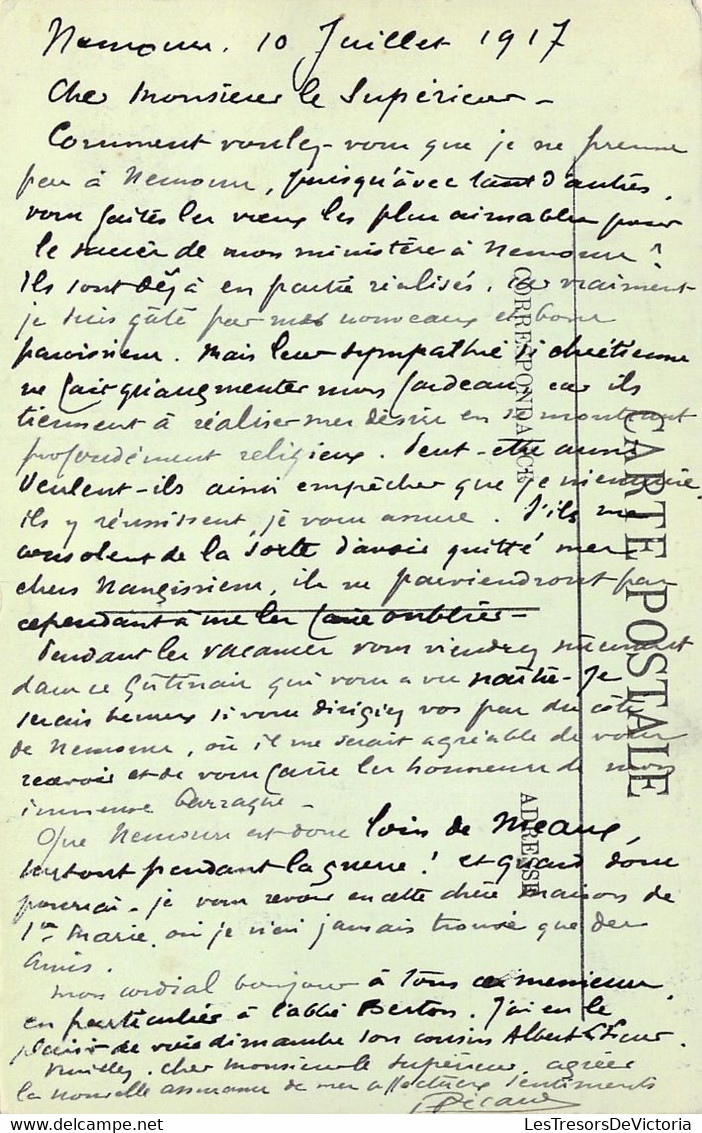 Nemours. 10 Juillet 1917
Cher Monsieur le Supérieur -
Comment voulez-vous que je ne prenne
pas à Nemours, puisqu'avec tant d'autres,
vous faites les vœux les plus aimables pour
le succès de mon ministère à Nemours ?
Ils sont déjà en partie réalisés, car vraiment
je suis gâté par mes nouveaux et bons
paroissiens. Mais leur sympathie si chrétienne
ne fait qu'augmenter mon fardeau, car ils
tiennent à réaliser mes désirs en se montrant
profondément religieux. Peut-être aussi
veulent-ils ainsi empêcher que je m'ennuie.
Ils y réussissent, je vous assure. S'ils me
consolent de la sorte d'avoir quitté mes
chers Nangissiens, ils ne parviendront pas
cependant à me les faire oublier -
Pendant les vacances vous viendrez sûrement
dans ce Gâtinais qui vous a vu naître - Je
serais heureux si vous dirigiez vos pas du côté
de Nemours, où il me serait agréable de vous
recevoir et de vous faire les honneurs de mon
immense barraque -
Que Nemours est donc loin de Meaux,
surtout pendant la guerre ! et quand donc
pourrai-je vous revoir en cette chère maison de
Ste Marie, où je n'ai jamais trouvé que des
amis.
Mon cordial bonjour à tous ces messieurs,
en particulier à l'abbé Berton. J'ai eu le
plaisir de voir dimanche son cousin Albert
Veuillez, cher Monsieur le Supérieur, agréer
la nouvelle assurance de mes affectueux sentiments
CARTE POSTALE
CORRESPONDANCE
ADRESSE
LesTresorsDeVictoria